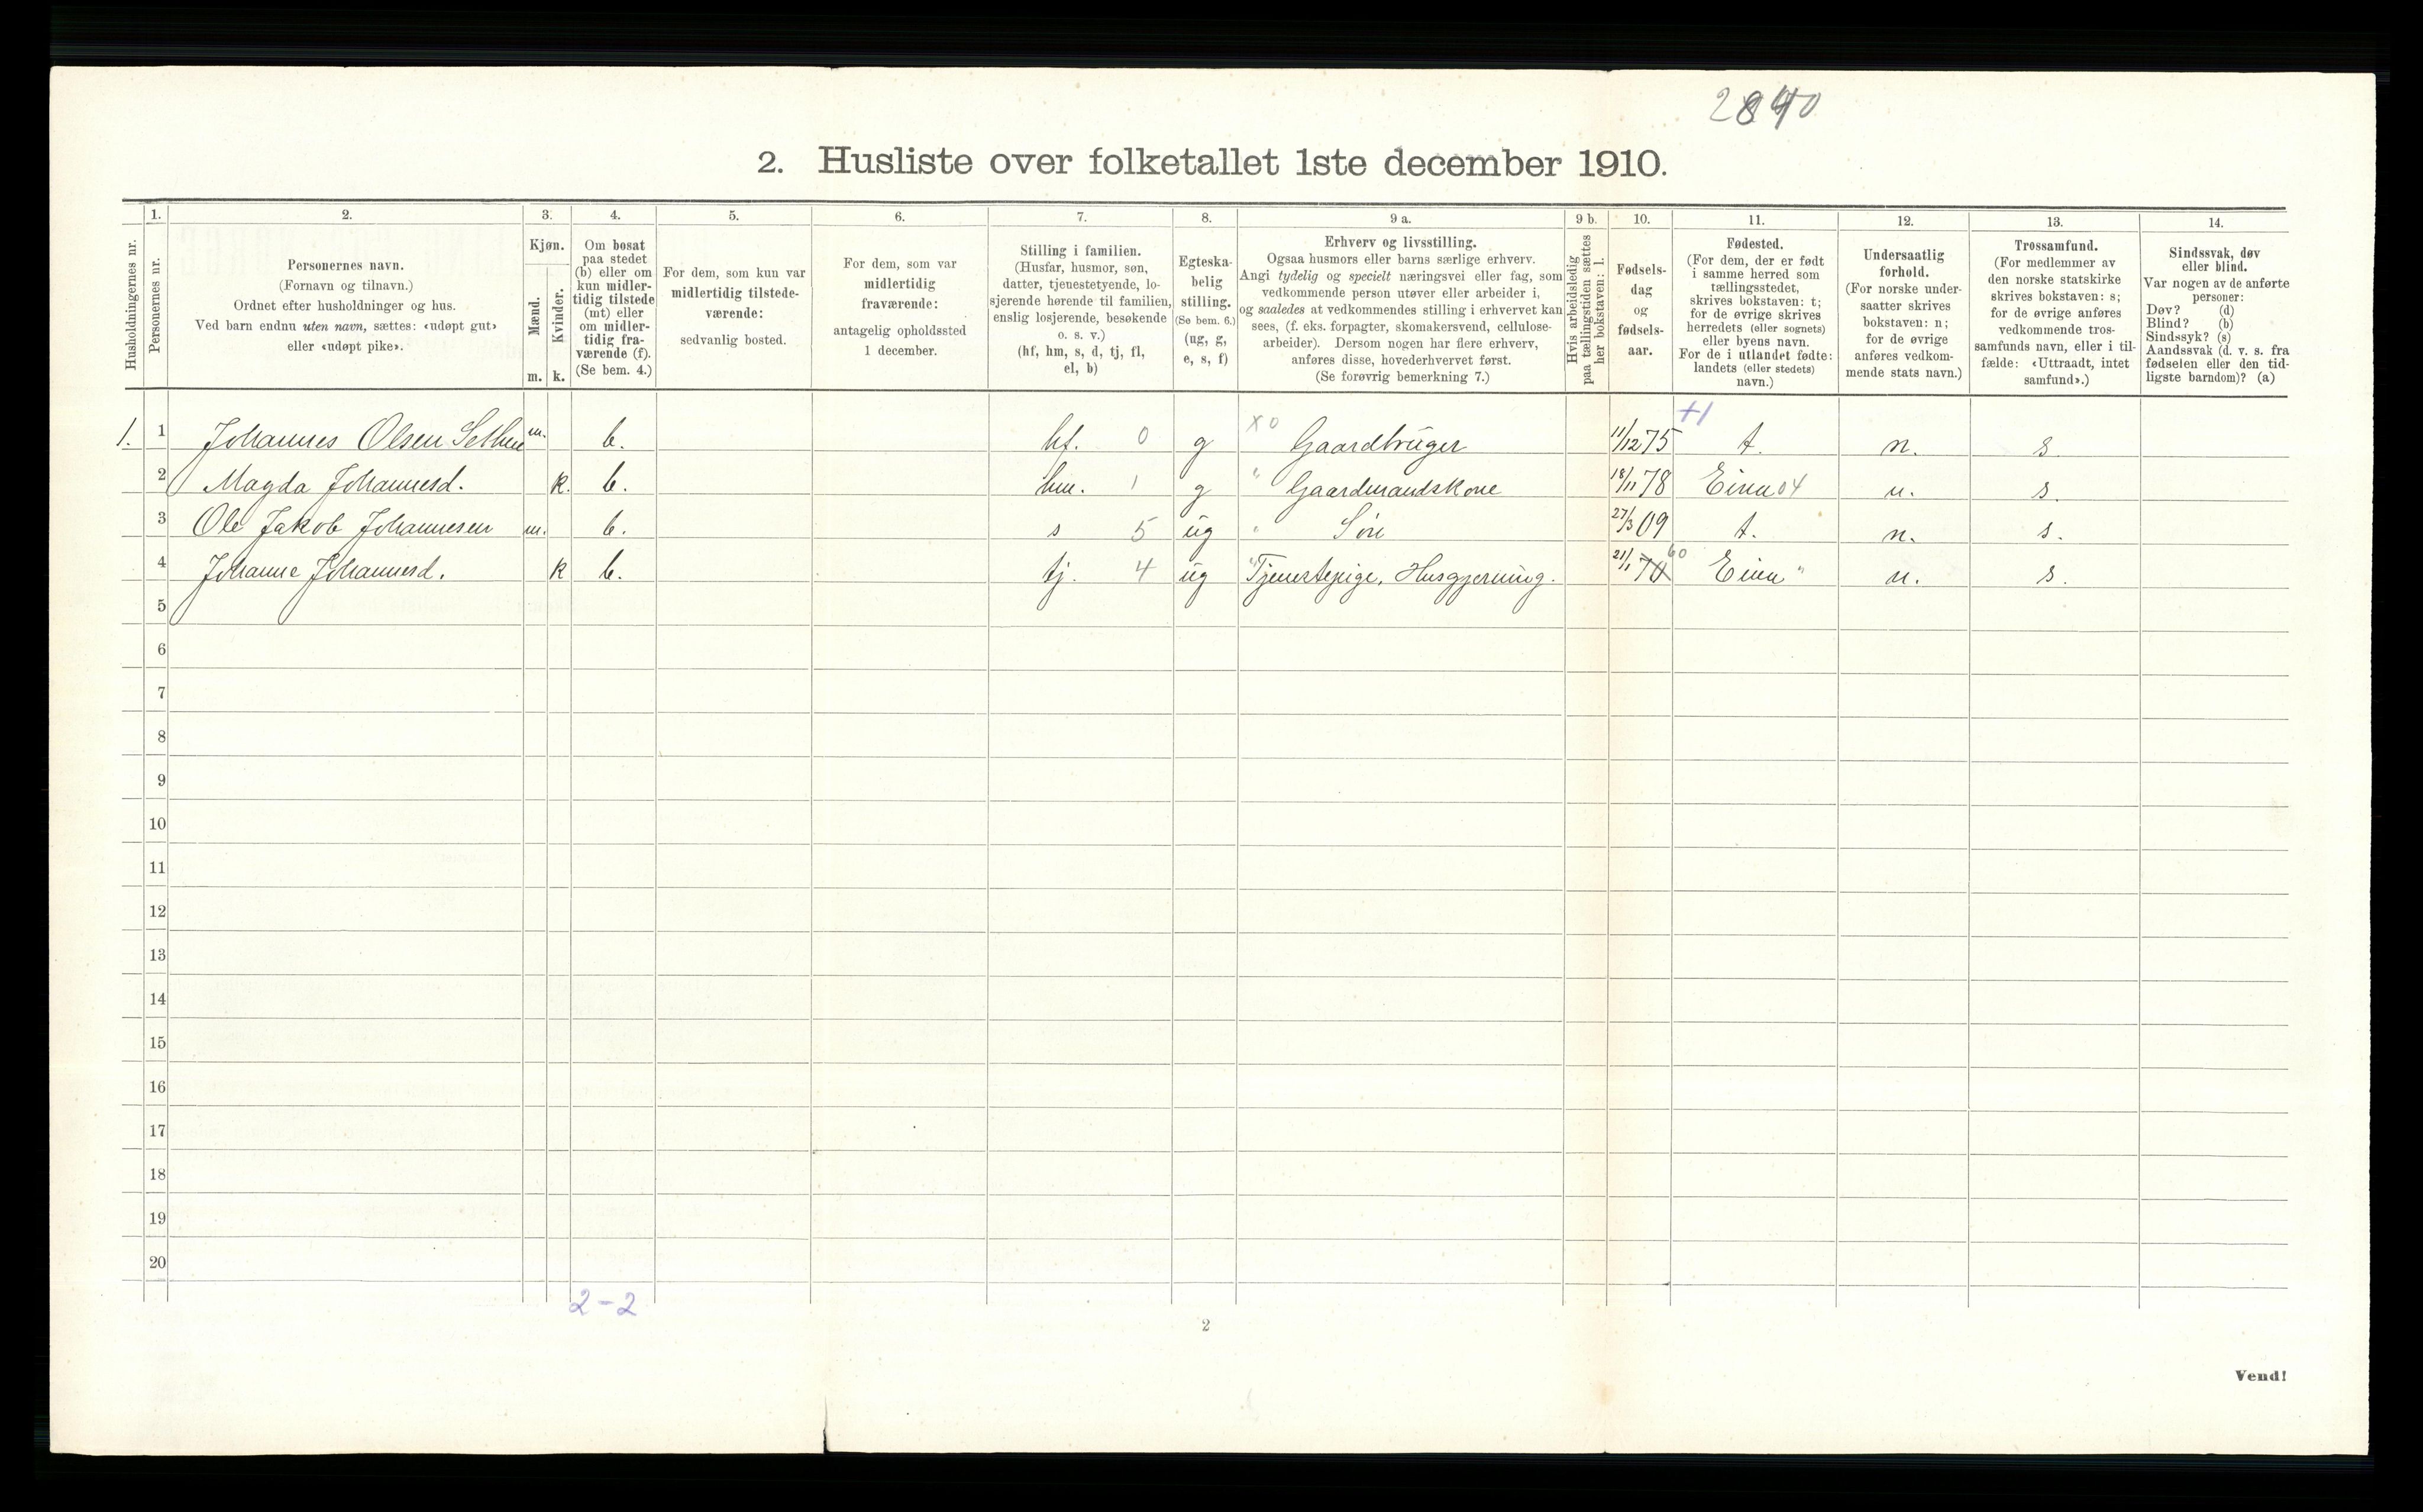 2840
2. Husliste over folketallet 1ste december 1910.
Husholdningernes nr.
1.
Personernes nr.
2.
Personernes navn.
(Fornavn og tilnavn.)
Ordnet efter husholdninger og hus.
Ved barn endnu uten navn, sættes: «udøpt gut»
eller «udøpt pike».
3.
Kjøn.
Mænd.
Kvinder.
m. k.
4.
Om bosat
paa stedet
(b) eller om
kun midler-
tidig tilstede
(mt) eller
om midler-
tidig fra-
værende (f).
(Se bem. 4.)
5.
For dem, som kun var
midlertidig tilstede-
værende:
sedvanlig bosted.
6.
For dem, som var
midlertidig
fraværende:
antagelig opholdssted
1 december.
7.
Stilling i familien.
(Husfar, husmor, søn,
datter, tjenestetyende, lo-
sjerende hørende til familien,
enslig losjerende, besøkende
o. s. v.)
(hf, hm, s, d, tj, fl,
el, b)
8.
Egteska-
belig
stilling.
(Se bem. 6.)
(ug, g,
e, s, f)
9 a.
Erhverv og livsstilling.
Ogsaa husmors eller barns særlige erhverv.
Angi tydelig og specielt næringsvei eller fag, som
vedkommende person utøver eller arbeider i,
og saaledes at vedkommendes stilling i erhvervet kan
sees, (f. eks. forpagter, skomakersvend, cellulose-
arbeider). Dersom nogen har flere erhverv,
anføres disse, hovederhvervet først.
(Se forøvrig bemerkning 7.)
9 b.
Hvis arbeidsledig
paa tællingstiden sættes
her bokstaven: l.
10.
Fødsels-
dag
og
fødsels-
aar.
11.
Fødested.
(For dem, der er født
i samme herred som
tællingsstedet,
skrives bokstaven: t;
for de øvrige skrives
herredets (eller sognets)
eller byens navn.
For de i utlandet fødte:
landets (eller stedets)
navn.)
12.
Undersaatlig
forhold.
(For norske under-
saatter skrives
bokstaven: n;
for de øvrige
anføres vedkom-
mende stats navn.)
13.
Trossamfund.
(For medlemmer av
den norske statskirke
skrives bokstaven: s;
for de øvrige anføres
vedkommende tros-
samfunds navn, eller i til-
fælde: «Uttraadt, intet
samfund».)
14.
Sindssvak, døv
eller blind.
Var nogen av de anførte
personer:
Døv? (d)
Blind? (b)
Sindssyk? (s)
Aandssvak (d. v. s. fra
fødselen eller den tid-
ligste barndom)? (a)
+1
1. 1 Johannes Olsen Sethne m. b. hf. 0 g x0 Gaardbruger 11/12 75 t. n. s.
2 Magda Johannesd. k. b. hm. 1 g " Gaardmandskone 18/11 78 Eina 04 n. s.
3 Ole Jakob Johannesen m. b. s 5 ug " Søn 27/3 09 t. n. s.
4 Johanne Johannesd. k b. tj. 4 ug " Tjenestepige, Husgjerning. 21/1 70 60 Eina " n. s.
5
6
7
8
9
10
11
12
13
14
15
16
17
18
19
20
2-2
2
Vend!